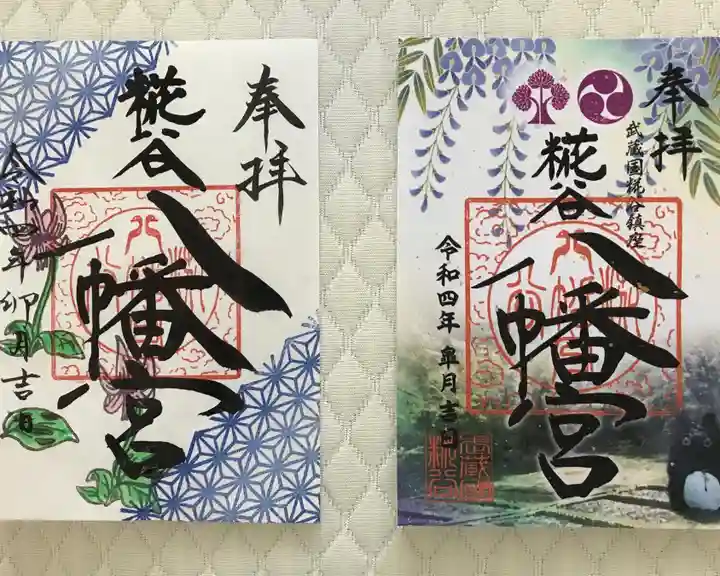 奉拝
糀谷
八幡宮
令和四年卯月吉日
奉拝
武蔵国糀谷鎮座
糀谷
八幡宮
令和四年皐月吉日